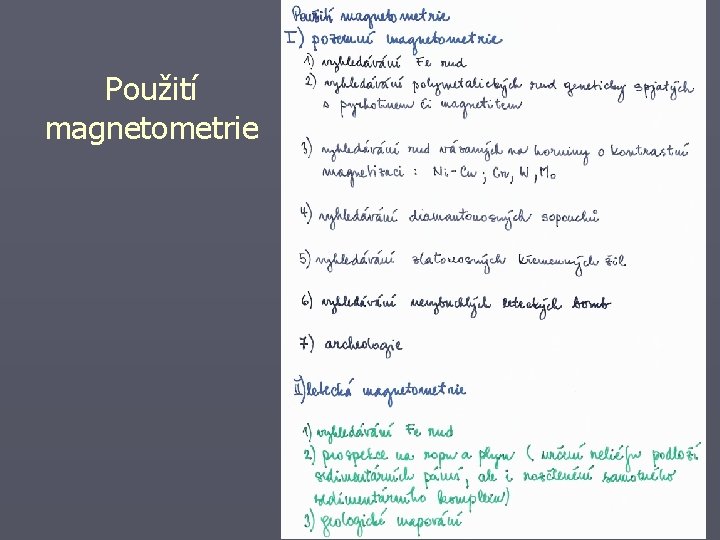 Použití
magnetometrie
Použití magnetometrie
I) pozemní magnetometrie
1) vyhledávání Fe rud
2) vyhledávání polymetalických rud geneticky spjatých
s pyrhotinem či magnetitem
3) vyhledávání rud vázaných na horniny o kontrastní
magnetizaci : Ni-Cu ; Cu, W, Mo
4) vyhledávání diamantonosných sopouchů
5) vyhledávání zlatonosných křemenných žil
6) vyhledávání nevybuchlých leteckých bomb
7) archeologie
II) letecká magnetometrie
1) vyhledávání Fe rud
2) prospekce na ropu a plyn ( určení reliéfu podloží
sedimentárních pánví, ale i rozčlenění samotného
sedimentárního komplexu)
3) geologické mapování